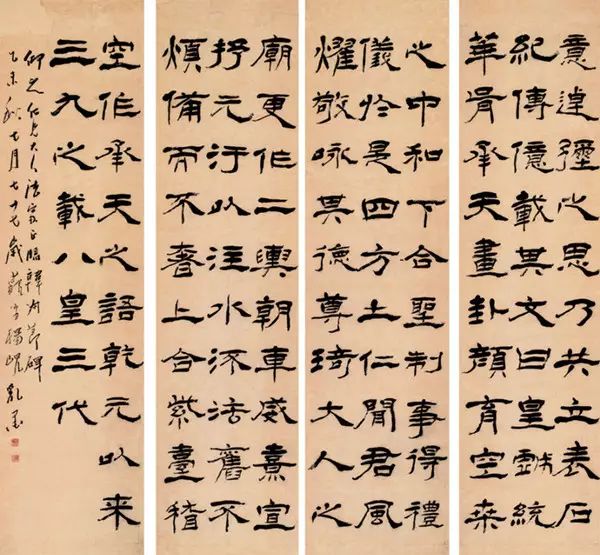 意遠彌之思乃共立表石
紀傳億載其文曰皇戲統
華胥承天畫卦顏育空桒
之中和下合聖制事得禮
儀於是四方土仁聞君風
燿敬咏其德尊琦大人之
廟更作二輿朝車威熹宣
抒元汙以注水沠法舊不
煩備而不奢上合紫臺稽
空作承天之語乾元以来
三九之載八皇三代
仰之仁兄大人法家正臨韓勑節碑
乙未秋七月七十七歲